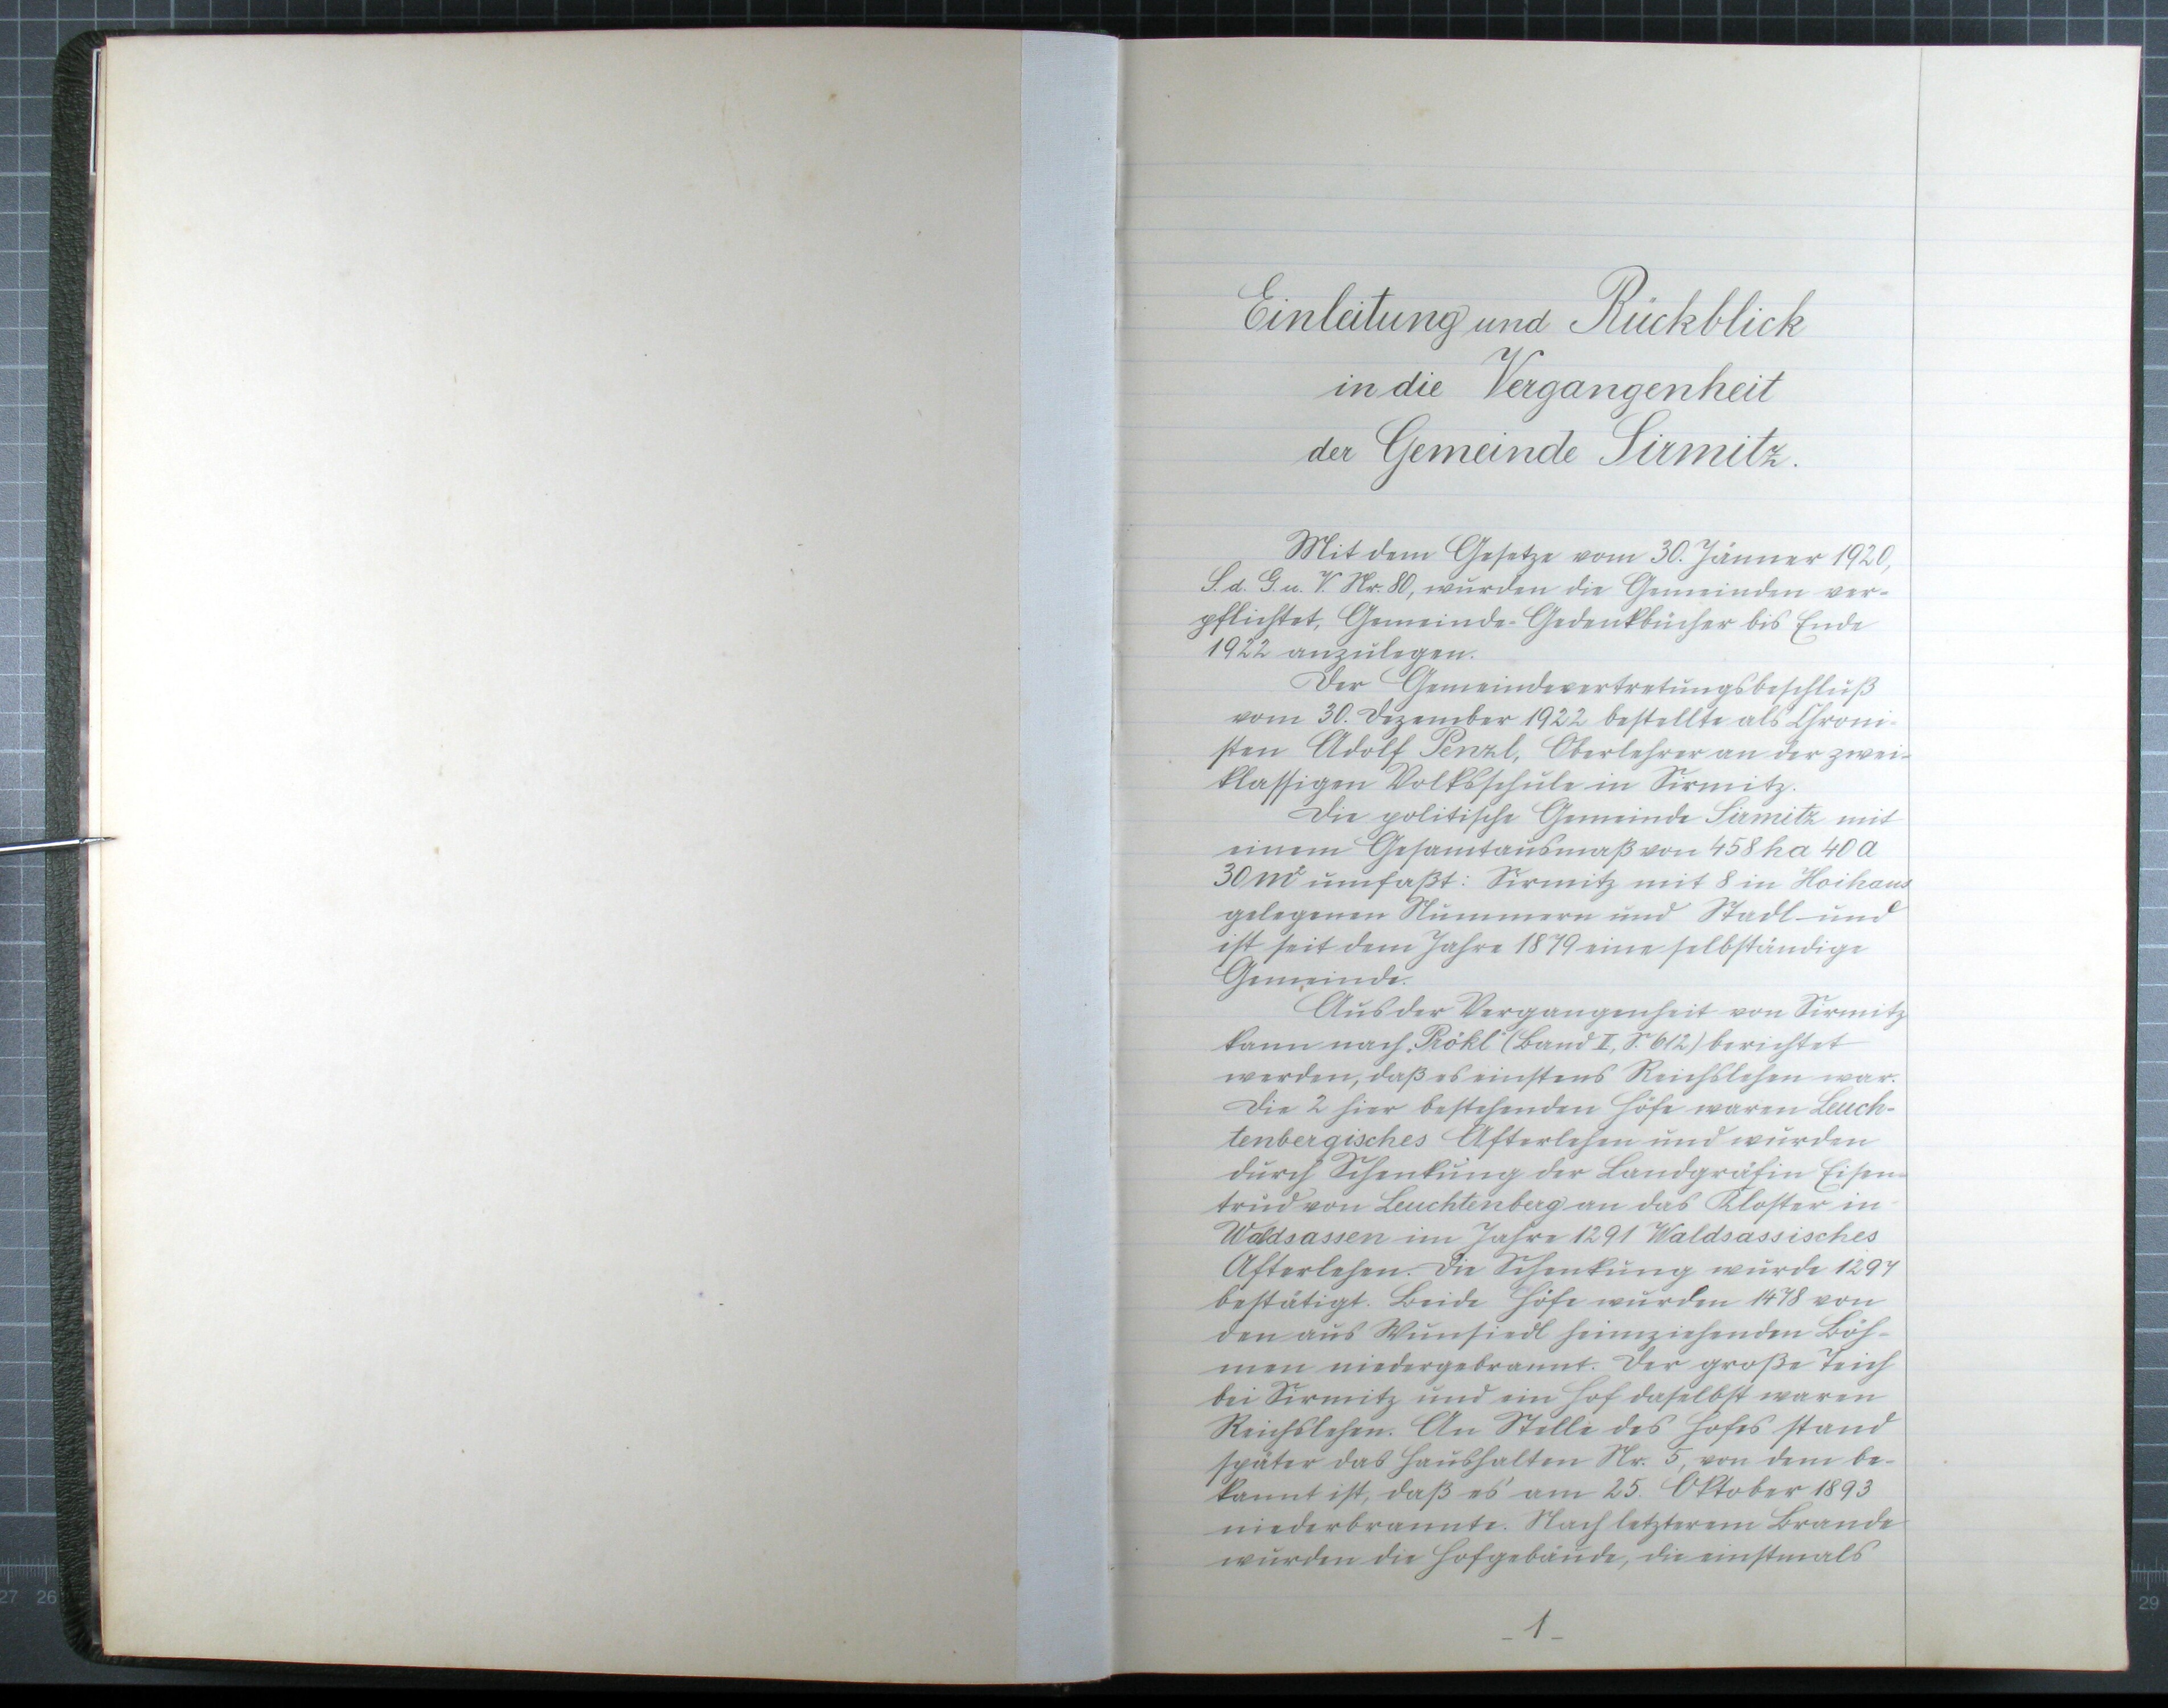 Einleitung und Rückblick
in die Vergangenheit
der Gemeinde Sirmitz.
Mit dem Gesetze vom 30. Jänner 1920,
S. d. G. u. V. Nr. 80, wurden die Gemeinden ver-
pflichtet, Gemeinde-Gedenkbücher bis Ende
1922 anzulegen.
Der Gemeindevertretungsbeschluß
vom 30. Dezember 1922 bestellte als Chroni-
sten Adolf Penzl, Oberlehrer an der zwei-
klassigen Volksschule in Sirmitz.
Die politische Gemeinde Sirmitz mit
einem Gesamtausmaß von 458 ha 40 a
30 m² umfaßt: Sirmitz mit 8 in Hoihaus
gelegenen Nummern und Stadl und
ist seit dem Jahre 1879 eine selbständige
Gemeinde.
Aus der Vergangenheit von Sirmitz
kann nach „Prökl" (Band II, S. 612) berichtet
werden, daß es einstens Reichslehen war.
Die 2 hier bestehenden Höfe waren Leuch-
tenbergisches Afterlehen und wurden
durch Schenkung der Landgräfin Eisen-
trud von Leuchtenberg an das Kloster in
Waldsassen im Jahre 1291 Waldsassisches
Afterlehen. Die Schenkung wurde 1297
bestätigt. Beide Höfe wurden 1478 von
den aus Wunsiedl heimziehenden Böh-
men niedergebrannt. Der große Teich
bei Sirmitz und ein Hof daselbst waren
Reichslehen. An Stelle des Hofes stand
später das Haushalten Nr. 5, von dem be-
kannt ist, daß es am 25. Oktober 1893
niederbrannte. Nach letzterem Brande
wurden die Hofgebäude, die einstmals
- 1 -
27 26
29